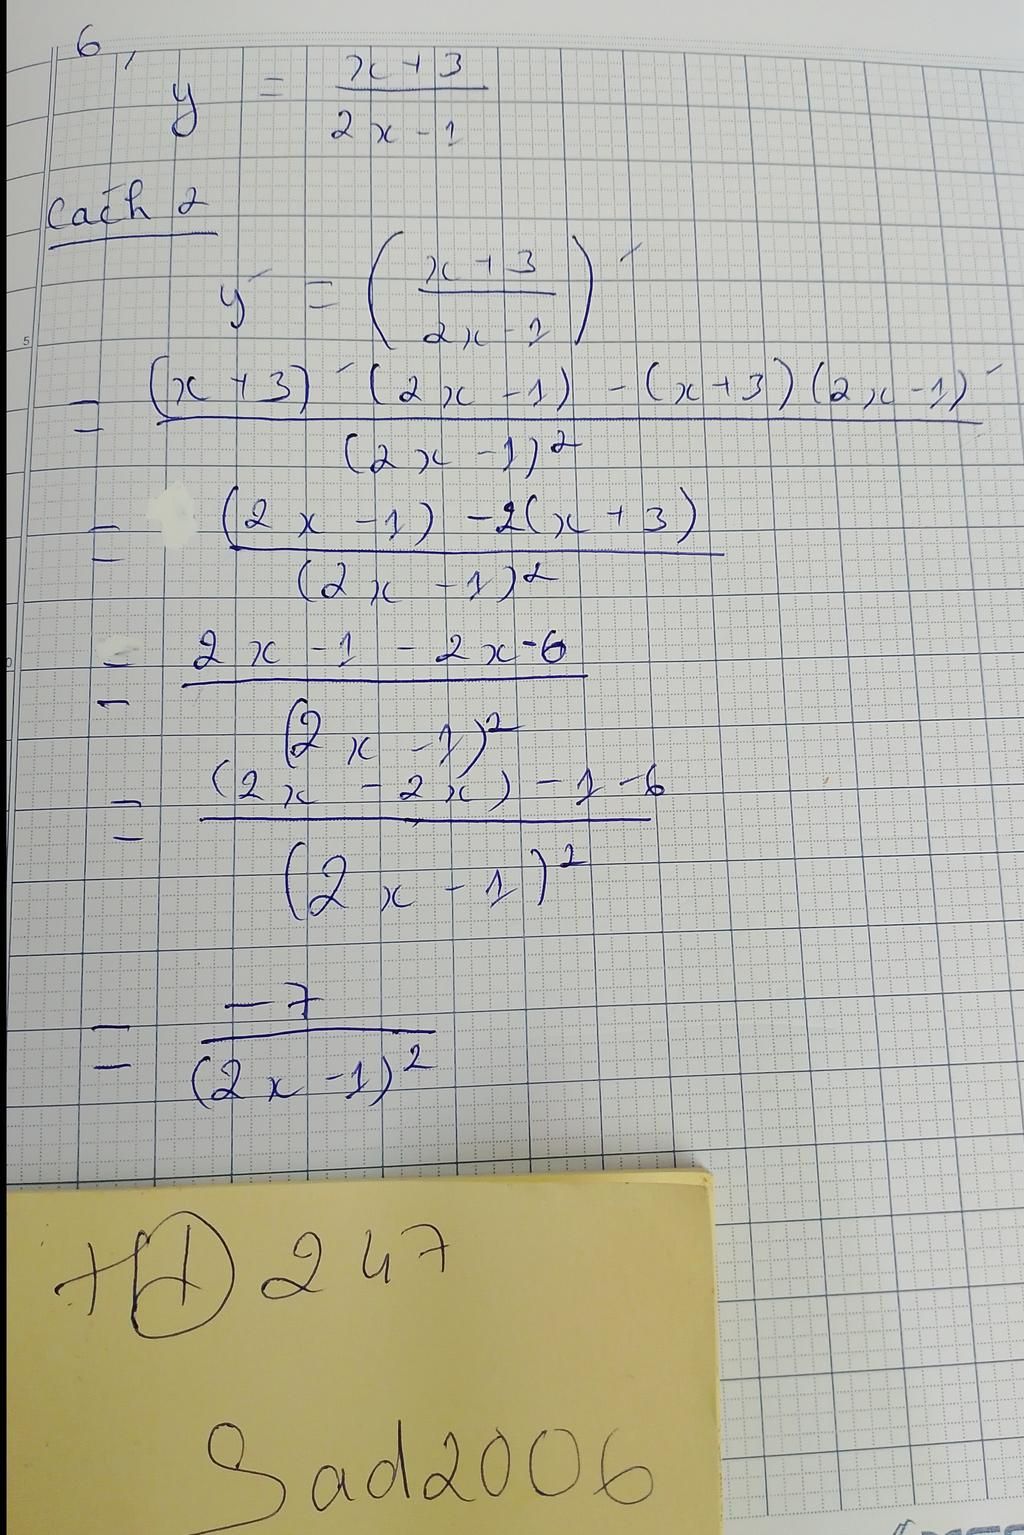 6,
y = (x+3)/(2x-1)
Cách 2
y' = ((x+3)/(2x-1))'
= ((x+3)'(2x-1) - (x+3)(2x-1)')/(2x-1)²
= ((2x-1) -2(x+3))/(2x-1)²
= (2x-1-2x-6)/(2x-1)²
= ((2x-2x)-1-6)/(2x-1)²
= -7/(2x-1)²
247
Sad2006